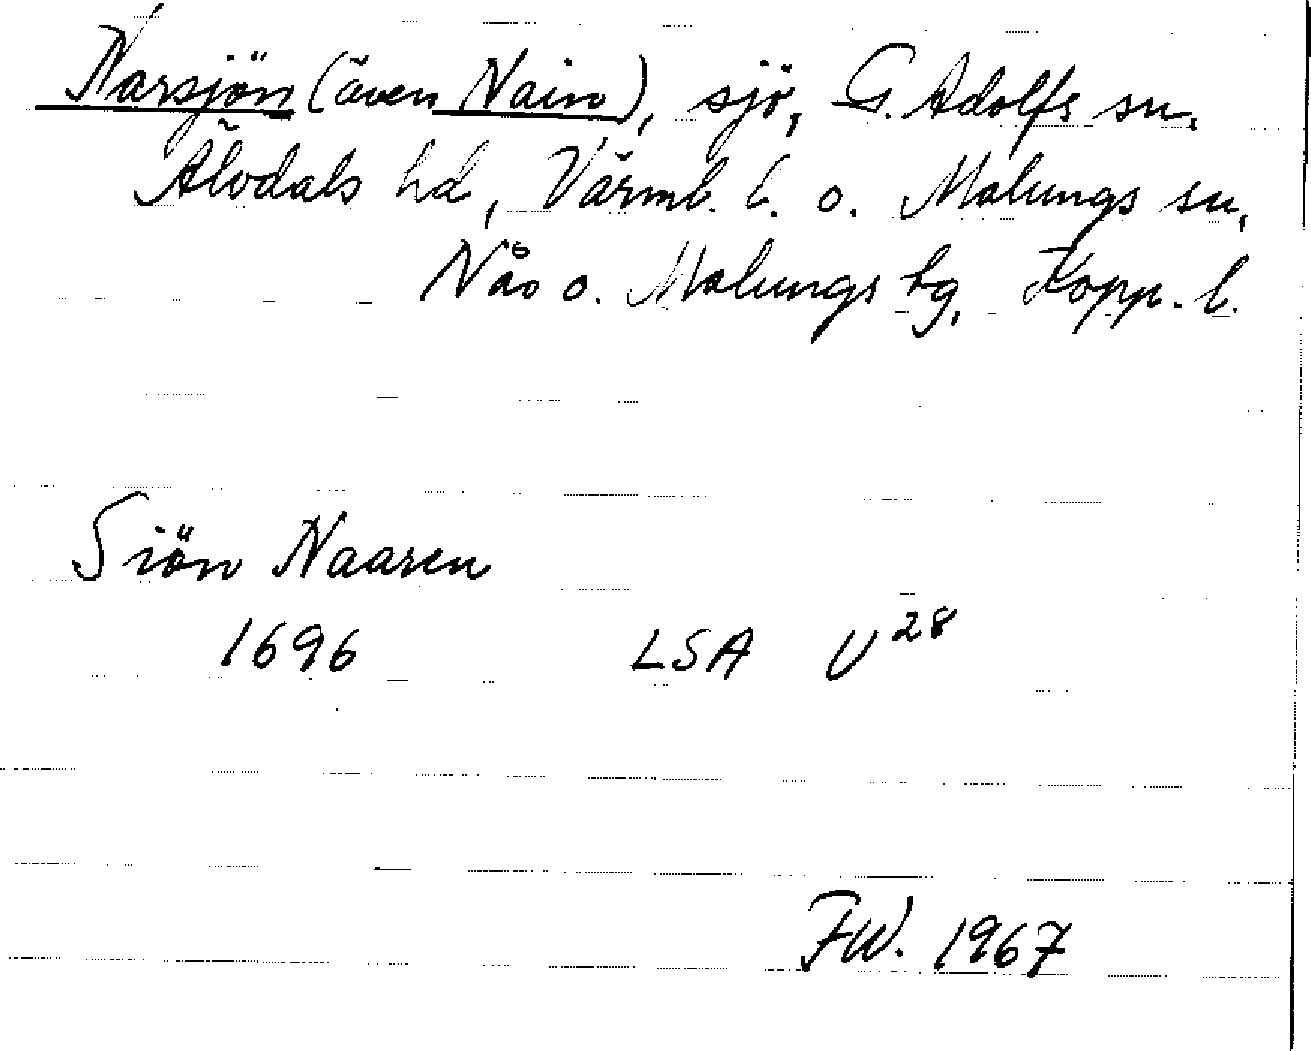 Narsjön (även Nain), sjö, G. Adolfs sn,
Älvdals hd, Värml. l. o. Malungs sn,
Nås o. Malungs tg, Kopp. l.
Siön Naaren
1696 LSA U 28
FW. 1967